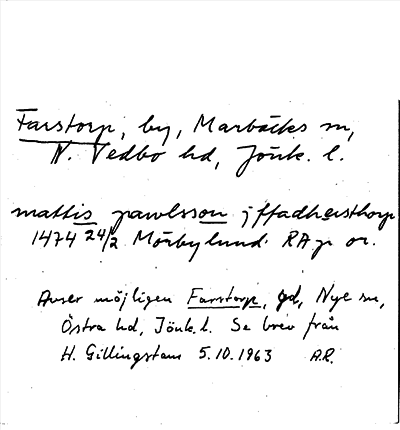 Farstorp, by, Marbäcks sn,
N. Vedbo hd, Jönk. l.
mattis pawlsson j ffadhersthorp
1474 24/2 Mörbylund RAp or.
Avser möjligen Farstorp, gd, Nye sn,
Östra hd, Jönk. l. Se brev från
H. Gillingstam 5.10.1963 A.R.